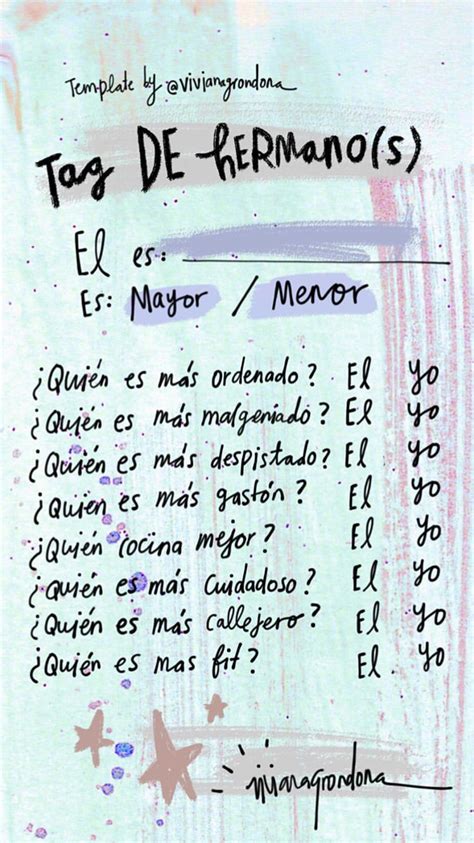 Template by @vivianagrondona
Tag DE hERMANO(S)
El es:
Es: Mayor / Menor
¿Quién es más ordenado? El yo
¿Quién es más malgeniado? El yo
¿Quién es más despistado? El yo
¿Quien es más gastón? El yo
¿Quién cocina mejor? El yo
¿quién es más cuidadoso? El yo
¿Quién es más callejero? El yo
¿Quién es mas fit? El. yo
vivianagrondona